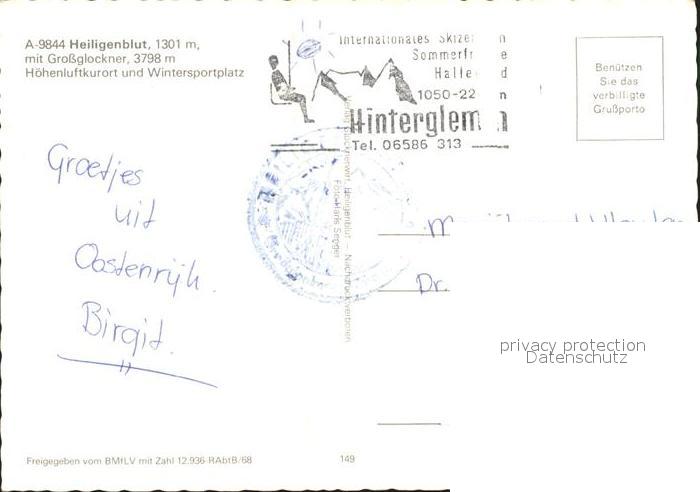 A-9844 Heiligenblut, 1301 m,
mit Großglockner, 3798 m
Höhenluftkurort und Wintersportplatz
Internationales Skize
Sommerfr e
Halle d
1050-22 n
Hinterglem
Tel. 06586 313
Benützen
Sie das
verbilligte
Grußporto
Groetjes
uit
Oostenrijk.
Birgit.
Heiligenblut – Nachdruck verboten
Foto Hans
Dr.
privacy protection
Datenschutz
Freigegeben vom BMfLV mit Zahl 12.936-RAbtB/68
149